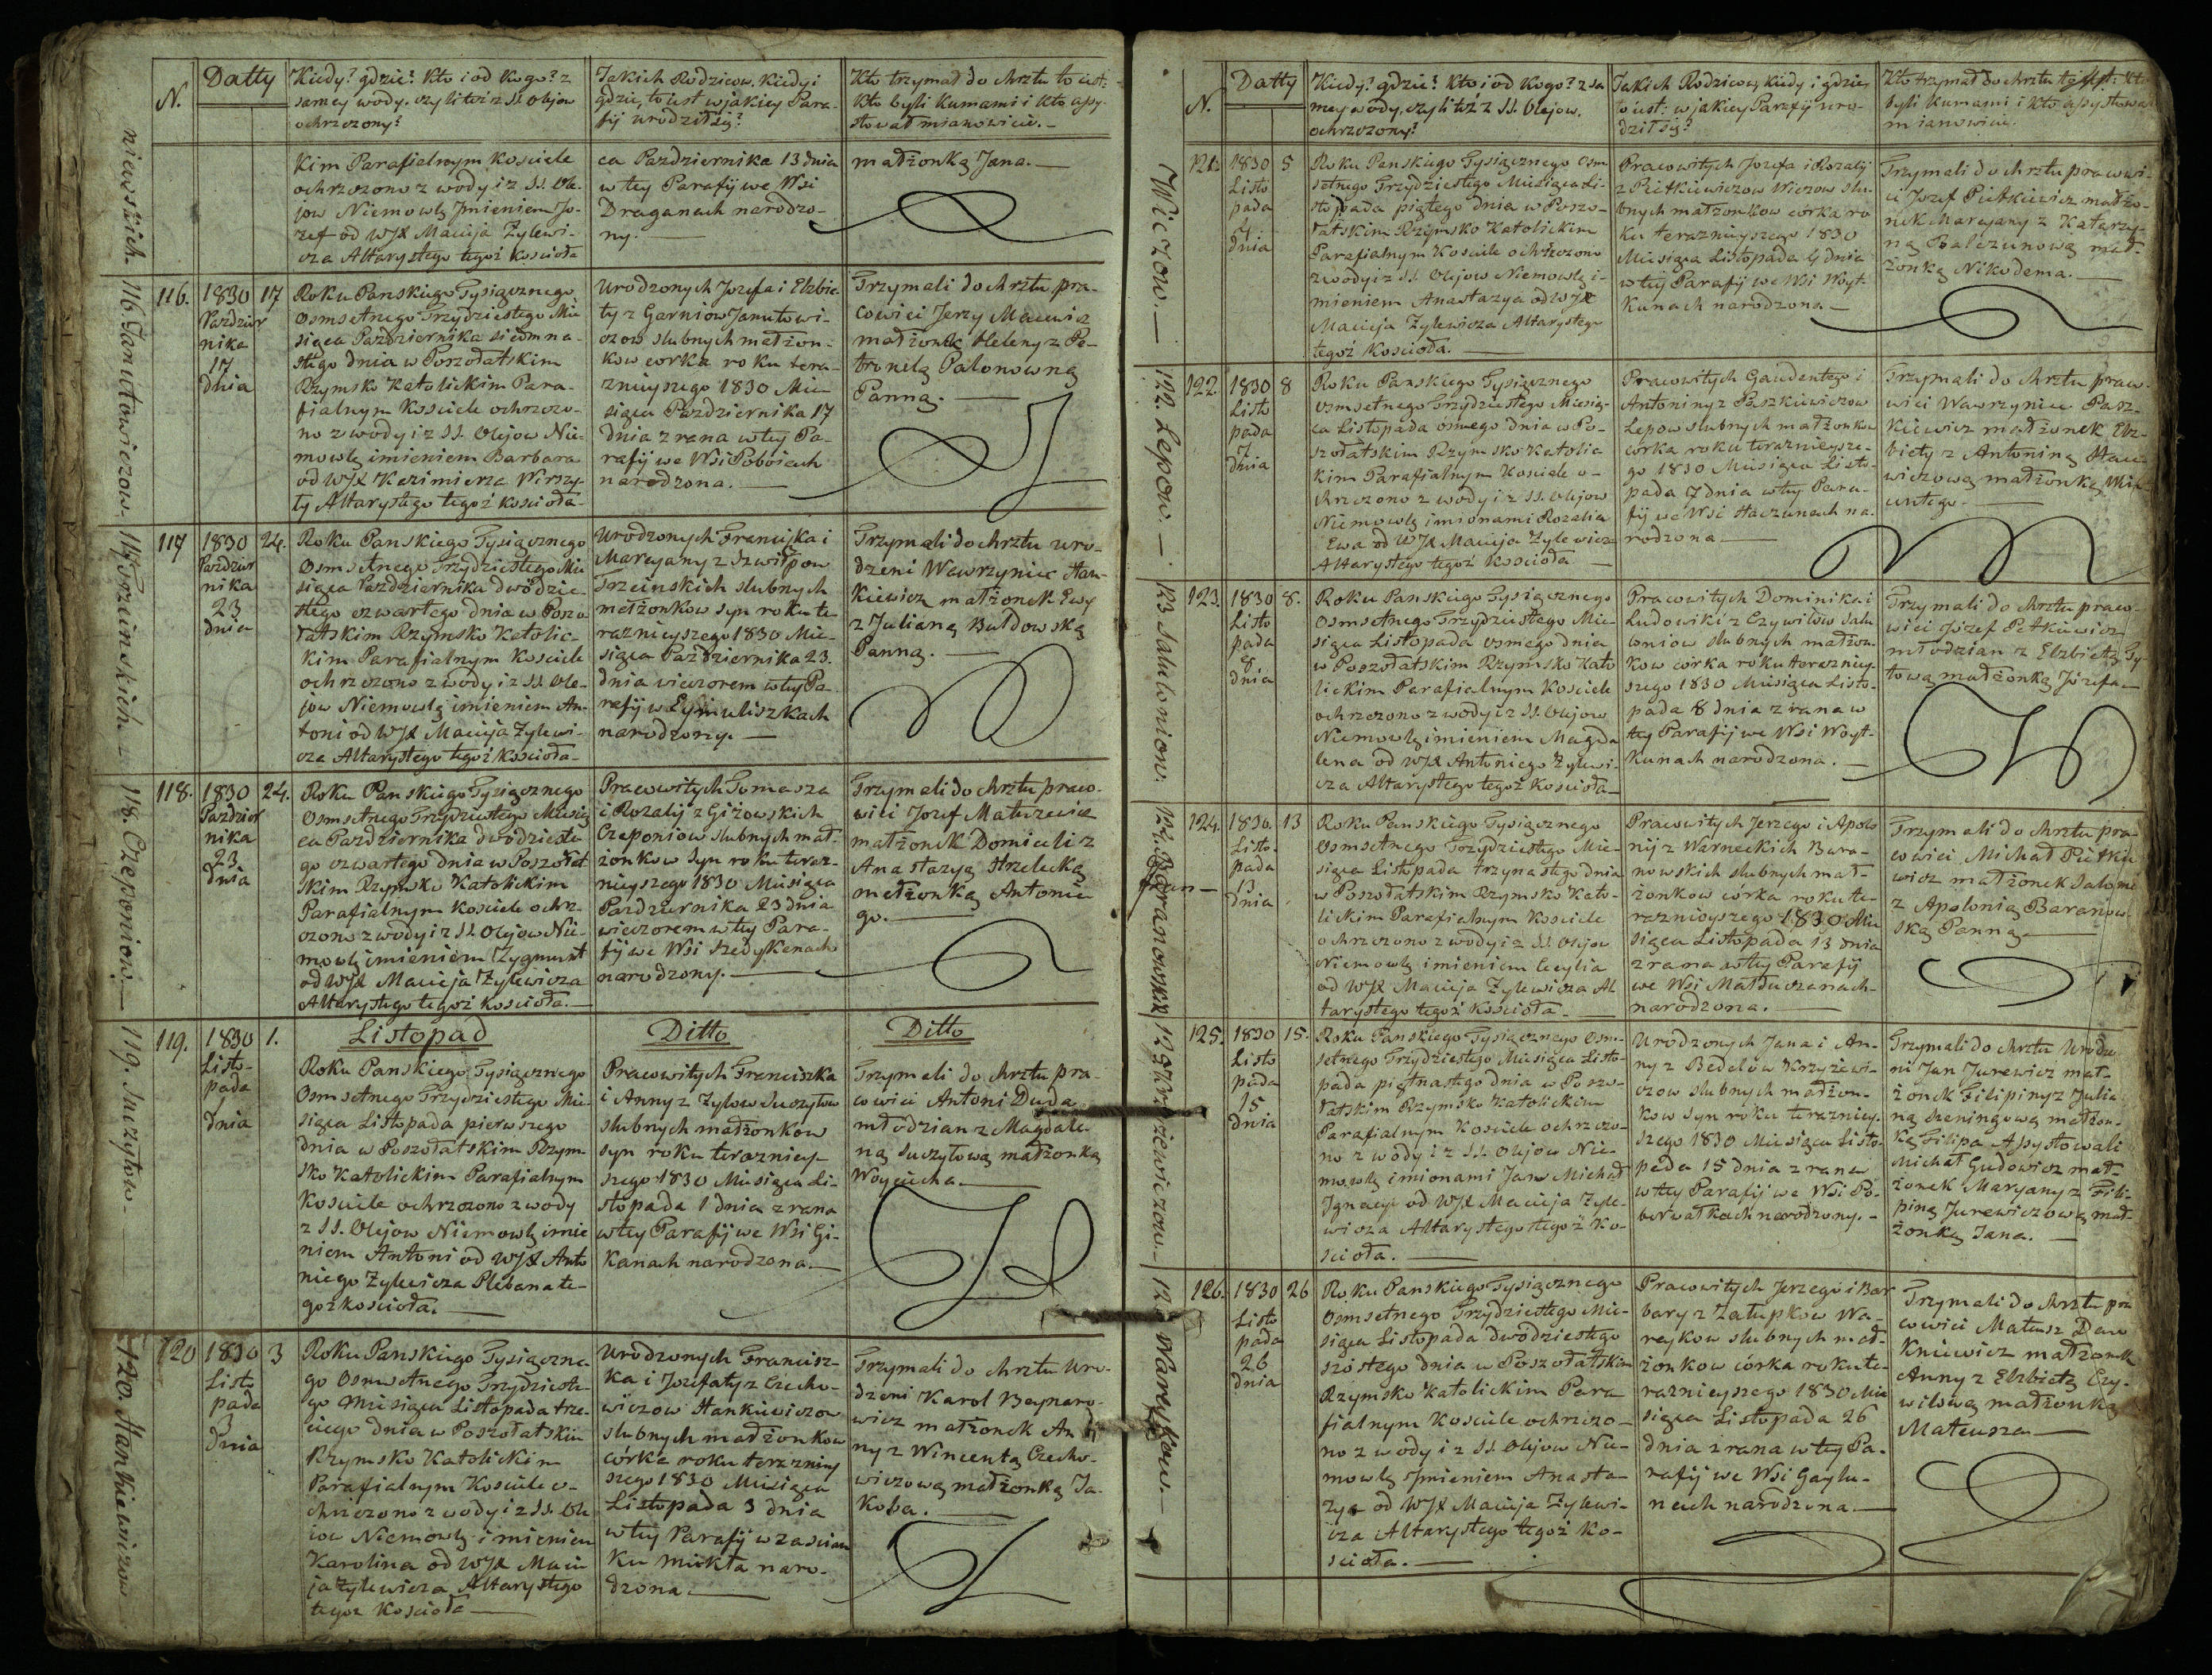 N.
Datty
Kiedy? gdzie? Kto i od kogo? z
samey wody. czyli też z SS. Olejow
ochrzczony?
Jakich Rodzicow. Kiedy i
gdzie, to iest w jakiey Para-
fij urodził się?
Kto trzymał do chrztu to iest:
Kto byli Kumami i kto assy-
stował mianowicie.
kim Parafialnym Kosciele
ochrzczono z wody i z SS. Ole-
jow Niemowlę Jmieniem Jo-
zef od WJX Macieja Zylewi-
cza Altarystego tegoż Kościoła
ca Pazdziernika 13 dnia
w tey Parafij we Wsi
Draganach narodzo-
ny.
małżonką Jana.
116. Janutowiczow.
116.
1830
Pazdzier
nika
17
dnia
17
Roku Panskiego Tysiącznego
Osmsetnego Trzydziestego Mie
siąca Pazdziernika siedmna-
stego dnia w Poszołatskim
Rzymsko Katolickim Para-
fialnym Kosciele ochrzczo-
no z wody i z SS. Olejow Nie-
mowlę imieniem Barbara
od WJX Kazimierza Wirszy-
ty Altarystego tegoż Kościoła
Urodzonych Jozefa i Elzbie-
ty z Garniow Janutowi-
czow slubnych małżon-
kow corka roku tera-
znieyszego 1830 Mie-
siąca Pazdziernika 17
dnia z rana w tey Pa-
rafij we Wsi Poboiach
narodzona.
Trzymali do chrztu pra-
cowici Jerzy Macewicz
małżonek Heleny z Pe-
tronelą Palonowną
Panną.
117. Trzcinskich
117
1830
Pazdzier
nika
23
dnia
24.
Roku Panskiego Tysiącznego
Osmsetnego Trzydziestego Mie
siąca Pazdziernika dwódzie-
stego czwartego dnia w Poszo
łatskim Rzymsko Katolic-
kim Parafialnym Kosciele
ochrzczono z wody i z SS. Ole-
jow Niemowlę imieniem An-
toni od WJX Macieja Zylewi-
cza Altarystego tegoż Kościoła
Urodzonych Franciszka i
Maryanny z
Trzcinskich slubnych
małżonkow syn roku te
raznieyszego 1830 Mie-
siąca Pazdziernika 23.
dnia wieczorem w tey Pa-
rafij w Eymuliszkach
narodzony.
Trzymali do chrztu uro-
dzeni Wawrzyniec Han-
kiewicz małżonek Ewy
z Julianą Buldowską
Panną.
118. Czeponiow.
118.
1830
Pazdzier
nika
23
dnia
24.
Roku Panskiego Tysiącznego
Osmsetnego Trzydziestego Miesią
ca Pazdziernika dwódzieste-
go czwartego dnia w Poszołat
skim Rzymsko Katolickim
Parafialnym Kosciele ochrz-
czono z wody i z SS. Olejow Nie-
mowlę imieniem Zygmunt
od WJX Macieja Zylewicza
Altarystego tegoż Kościoła.
Pracowitych Tomasza
i Rozalij z Giżowskich
Czeponiow slubnych mał-
żonkow Syn roku teraz-
nieyszego 1830 Miesiąca
Pazdziernika 23 dnia
wieczorem w tey Para-
fij we Wsi Szedykenach
narodzony.
Trzymali do chrztu praco-
wici Jozef Mateszewicz
małżonek Domiceli z
Anastazyą Strzelecką
małżonką Antonie
go.
119. Suczytow
119.
1830
Listo-
pada
1
dnia
1.
Listopad
Roku Panskiego Tysiącznego
Osmsetnego Trzydziestego Mie-
siąca Listopada pierwszego
dnia w Poszołatskim Rzym-
sko Katolickim Parafialnym
Kosciele ochrzczono z wody
z SS. Olejow Niemowlę imie
niem Antoni od WJX Anto
niego Zylewicza Plebana te-
goż kościoła.
Ditto
Pracowitych Franciszka
i Anny z Zylow Suczytow
slubnych małżonkow
syn roku terazniey-
szego 1830 Miesiąca Li-
stopada 1 dnia z rana
w tey Parafij we Wsi Gi-
kanach narodzona.
Ditto
Trzymali do chrztu pra-
cowici Antoni Duda
młodzian z Magdale-
ną Suczytową małżonką
Woyciecha.
120. Hankiewiczow
120
1830
Listo
pada
3
dnia
3
Roku Panskiego Tysiączne-
go Osmsetnego Trzydzieste-
go Miesiąca Listopada trze-
ciego dnia w Poszołatskim
Rzymsko Katolickim
Parafialnym Kosciele o-
chrzczono z wody i z SS. Ole
jow Niemowlę imieniem
Karolina od WJX Macie
ja Zylewicza Altarystego
tegoż Kościoła
Urodzonych Francisz-
ka i Jozefaty z Czecho-
wiczow Hankiewiczow
slubnych małżonkow
córka roku teraźniey
szego 1830 Miesiąca
Listopada 3 dnia
w tey Parafij w zascian
ku Mikta naro-
dzona
Trzymali do chrztu uro-
dzeni Karol Beynaro-
wicz małżonek An
ny z Wincentą Czecho-
wiczową małżonką Ja-
koba.
N.
Datty
Kiedy? gdzie? Kto i od kogo? z sa
mey wody, czyli też z SS. Olejow.
ochrzczony?
Jakich Rodzicow, kiedy i gdzie,
to iest: w jakiey Parafij uro-
dził się?
Kto trzymał do chrztu to iest: Kto
byli Kumami i kto assystował
mianowicie.
Wiczow.
121.
1830
Listo
pada
4
dnia
5
Roku Panskiego Tysiącznego Osm
setnego Trzydziestego Miesiąca Li-
stopada piątego dnia w Poszo-
łatskim Rzymsko Katolickim
Parafialnym Kosciele ochrzczono
z wody i z SS. Olejow Niemowlę i-
mieniem Anastazya od WJX
Macieja Zylewicza Altarystego
tegoż Kościoła.
Pracowitych Jozefa i Rozalij
z Pietkiewiczow Wiczow slu-
bnych małżonkow córka ro
ku teraznieyszego 1830
Miesiąca Listopada 4 dnia
w tey Parafij we Wsi Woyt-
kunach narodzona.
Trzymali do chrztu pracowi-
ci Jozef Pietkiewicz małżo-
nek Maryanny z Katarzy-
ną Balczunową mał-
żonką Nikodema.
122. Lepow.
122.
1830
Listo
pada
7
dnia
8
Roku Panskiego Tysiącznego
Osmsetnego Trzydziestego Miesią-
ca Listopada osmego dnia w Po-
szołatskim Rzymsko Katolic
kim Parafialnym Kosciele o-
chrzczono z wody i z SS. Olejow
Niemowlę imionami Rozalia
Ewa od WJX Macieja Zylewicza
Altarystego tegoż Kościoła
Pracowitych Gaudentego i
Antoniny z Paszkiewiczow
Lepow slubnych małżonkow
corka roku teraznieysze-
go 1830 Miesiąca Listo-
pada 7 dnia w tey Para-
fij we Wsi Haczunach na-
rodzona
Trzymali do chrztu praco-
wici Wawrzyniec Pasz-
kiewicz małżonek Elz-
biety z Antoniną
małżonką
123 Salulowniow.
123.
1830
Listo
pada
8
dnia
8.
Roku Panskiego Tysiącznego
Osmsetnego Trzydziestego Mie-
siąca Listopada osmego dnia
w Poszołatskim Rzymsko Kato
lickim Parafialnym Kosciele
ochrzczono z wody i z SS. Olejow
Niemowlę imieniem Magda
lena od WJX Antoniego Zylewi-
cza Altarystego tegoż Kościoła
Pracowitych Dominika i
Ludowiki z Czywilow Salu
loniow slubnych małżon-
kow córka roku teraźniey-
szego 1830 Miesiąca Listo-
pada 8 dnia z rana w
tey Parafij we Wsi Woyt-
kunach narodzona.
Trzymali do chrztu praco-
wici Jozef Petkiewicz
młodzian z Elzbietą
małżonką Józefa
124. Baranowskich
124.
1830.
Listo.
pada
13
dnia
13
Roku Panskiego Tysiącznego
Osmsetnego Trzydziestego Mie-
siąca Listopada trzynastego dnia
w Poszołatskim Rzymsko Kato-
lickim Parafialnym Kosciele
ochrzczono z wody i z SS. Olejow
Niemowlę imieniem Cecylia
od WJX Macieja Zylewicza Al
tarystego tegoż Kościoła.
Pracowitych Jerzego i Apolo
nij z Warneckich Bara-
nowskich slubnych mał-
żonkow córka roku te-
raznieyszego 1830 Mie
siąca Listopada 13 dnia
z rana w tey Parafij
we Wsi Małduczanach
narodzona.
Trzymali do chrztu pra-
cowici Michał Pietkie
wicz małżonek Salomei
z Apolonią Baranow-
ską Panną
125 Krzyżewiczow.
125.
1830
Listo
pada
15
dnia
15.
Roku Panskiego Tysiącznego Osm-
setnego Trzydziestego Miesiąca Listo-
pada piętnastego dnia w Poszo-
łatskim Rzymsko Katolickim
Parafialnym Kosciele ochrzczo-
no z wody i z SS. Olejow Nie-
mowlę imionami Jan Michał
Ignacy od WJX Macieja Zyle-
wicza Altarystego tegoż Ko-
ścioła.
Urodzonych Jana i An-
ny z Bedelów Krzyżewi-
czow slubnych małżon-
kow syn roku teraźniey-
szego 1830 Miesiąca Listo-
pada 15 dnia z rana
w tey Parafij we Wsi Po-
berwałkach narodzony.
Trzymali do chrztu Urodze
ni Jan Jurewicz mał-
żonek Filipiny z Julia
ną Szeningową małżon-
ką Filipa Assystowali
Michał Gudowicz mał-
żonek Maryanny z Fili-
piną Jurewiczową mał-
żonką Jana.
126 Wareykow.
126.
1830
Listo
pada
26
dnia
26
Roku Panskiego Tysiącznego
Osmsetnego Trzydziestego Mie-
siąca Listopada dwódziestego
szóstego dnia w Poszołatskim
Rzymsko Katolickim Para
fialnym Kosciele ochrzczo-
no z wody i z SS. Olejow Nie-
mowlę Jmieniem Anasta-
zya od WJX Macieja Zylewi-
cza Altarystego tegoż Ko-
ścioła.
Pracowitych Jerzego i Bar
bary z Załupkow Wa-
reykow slubnych mał-
żonkow córka roku te-
raznieyszego 1830 Mie
siąca Listopada 26
dnia z rana w tey Pa-
rafij we Wsi Gaylu-
nach narodzona.
Trzymali do chrztu pra
cowici Mateusz Daw
kniewicz małżonek
Anny z Elzbietą Czy-
wilową małżonką
Mateusza